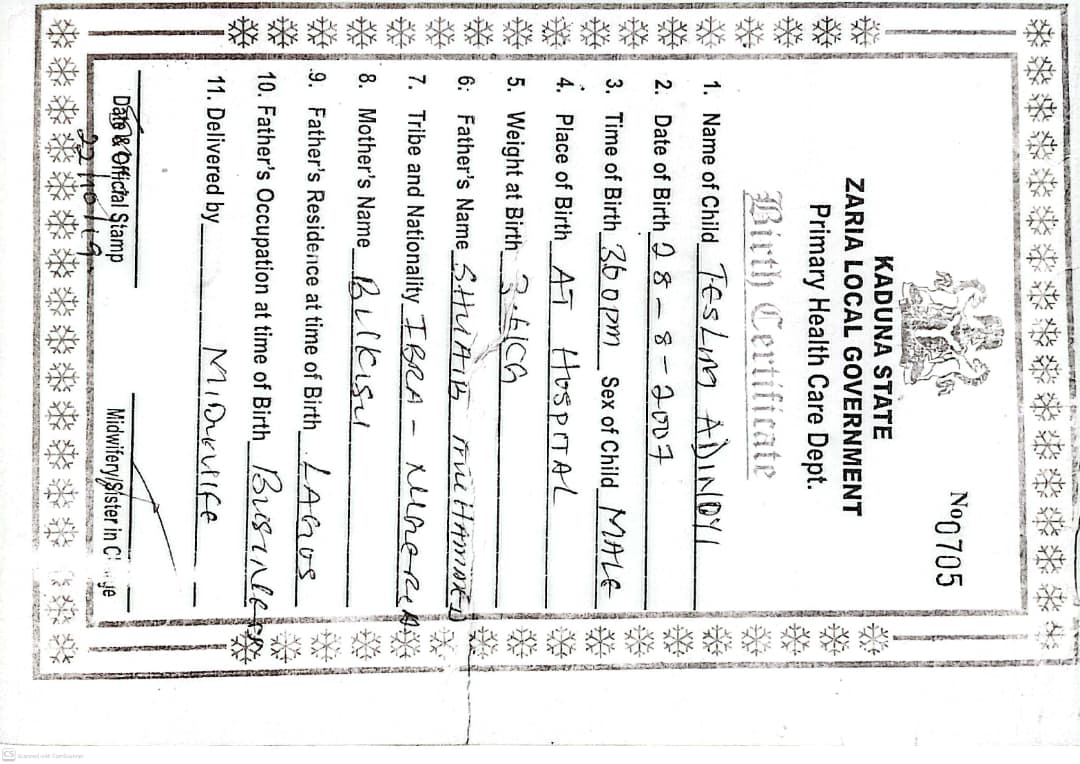 No 0705
KADUNA STATE
ZARIA LOCAL GOVERNMENT
Primary Health Care Dept.
Birth Certificate
1. Name of Child TESLIM ADINOYI
2. Date of Birth 28-8-2007
3. Time of Birth 360pm Sex of Child MALE
4. Place of Birth AT HOSPITAL
5. Weight at Birth
6. Father's Name SHUAIB MUHAMMED
7. Tribe and Nationality IBRA - NIGERIA
8. Mother's Name BILKISU
9. Father's Residence at time of Birth LAGOS
10. Father's Occupation at time of Birth BUSINESS
11. Delivered by MIDWIFE
Date & Official Stamp
22/10/19
Midwifery/Sister in C
CS Scanned with CamScanner